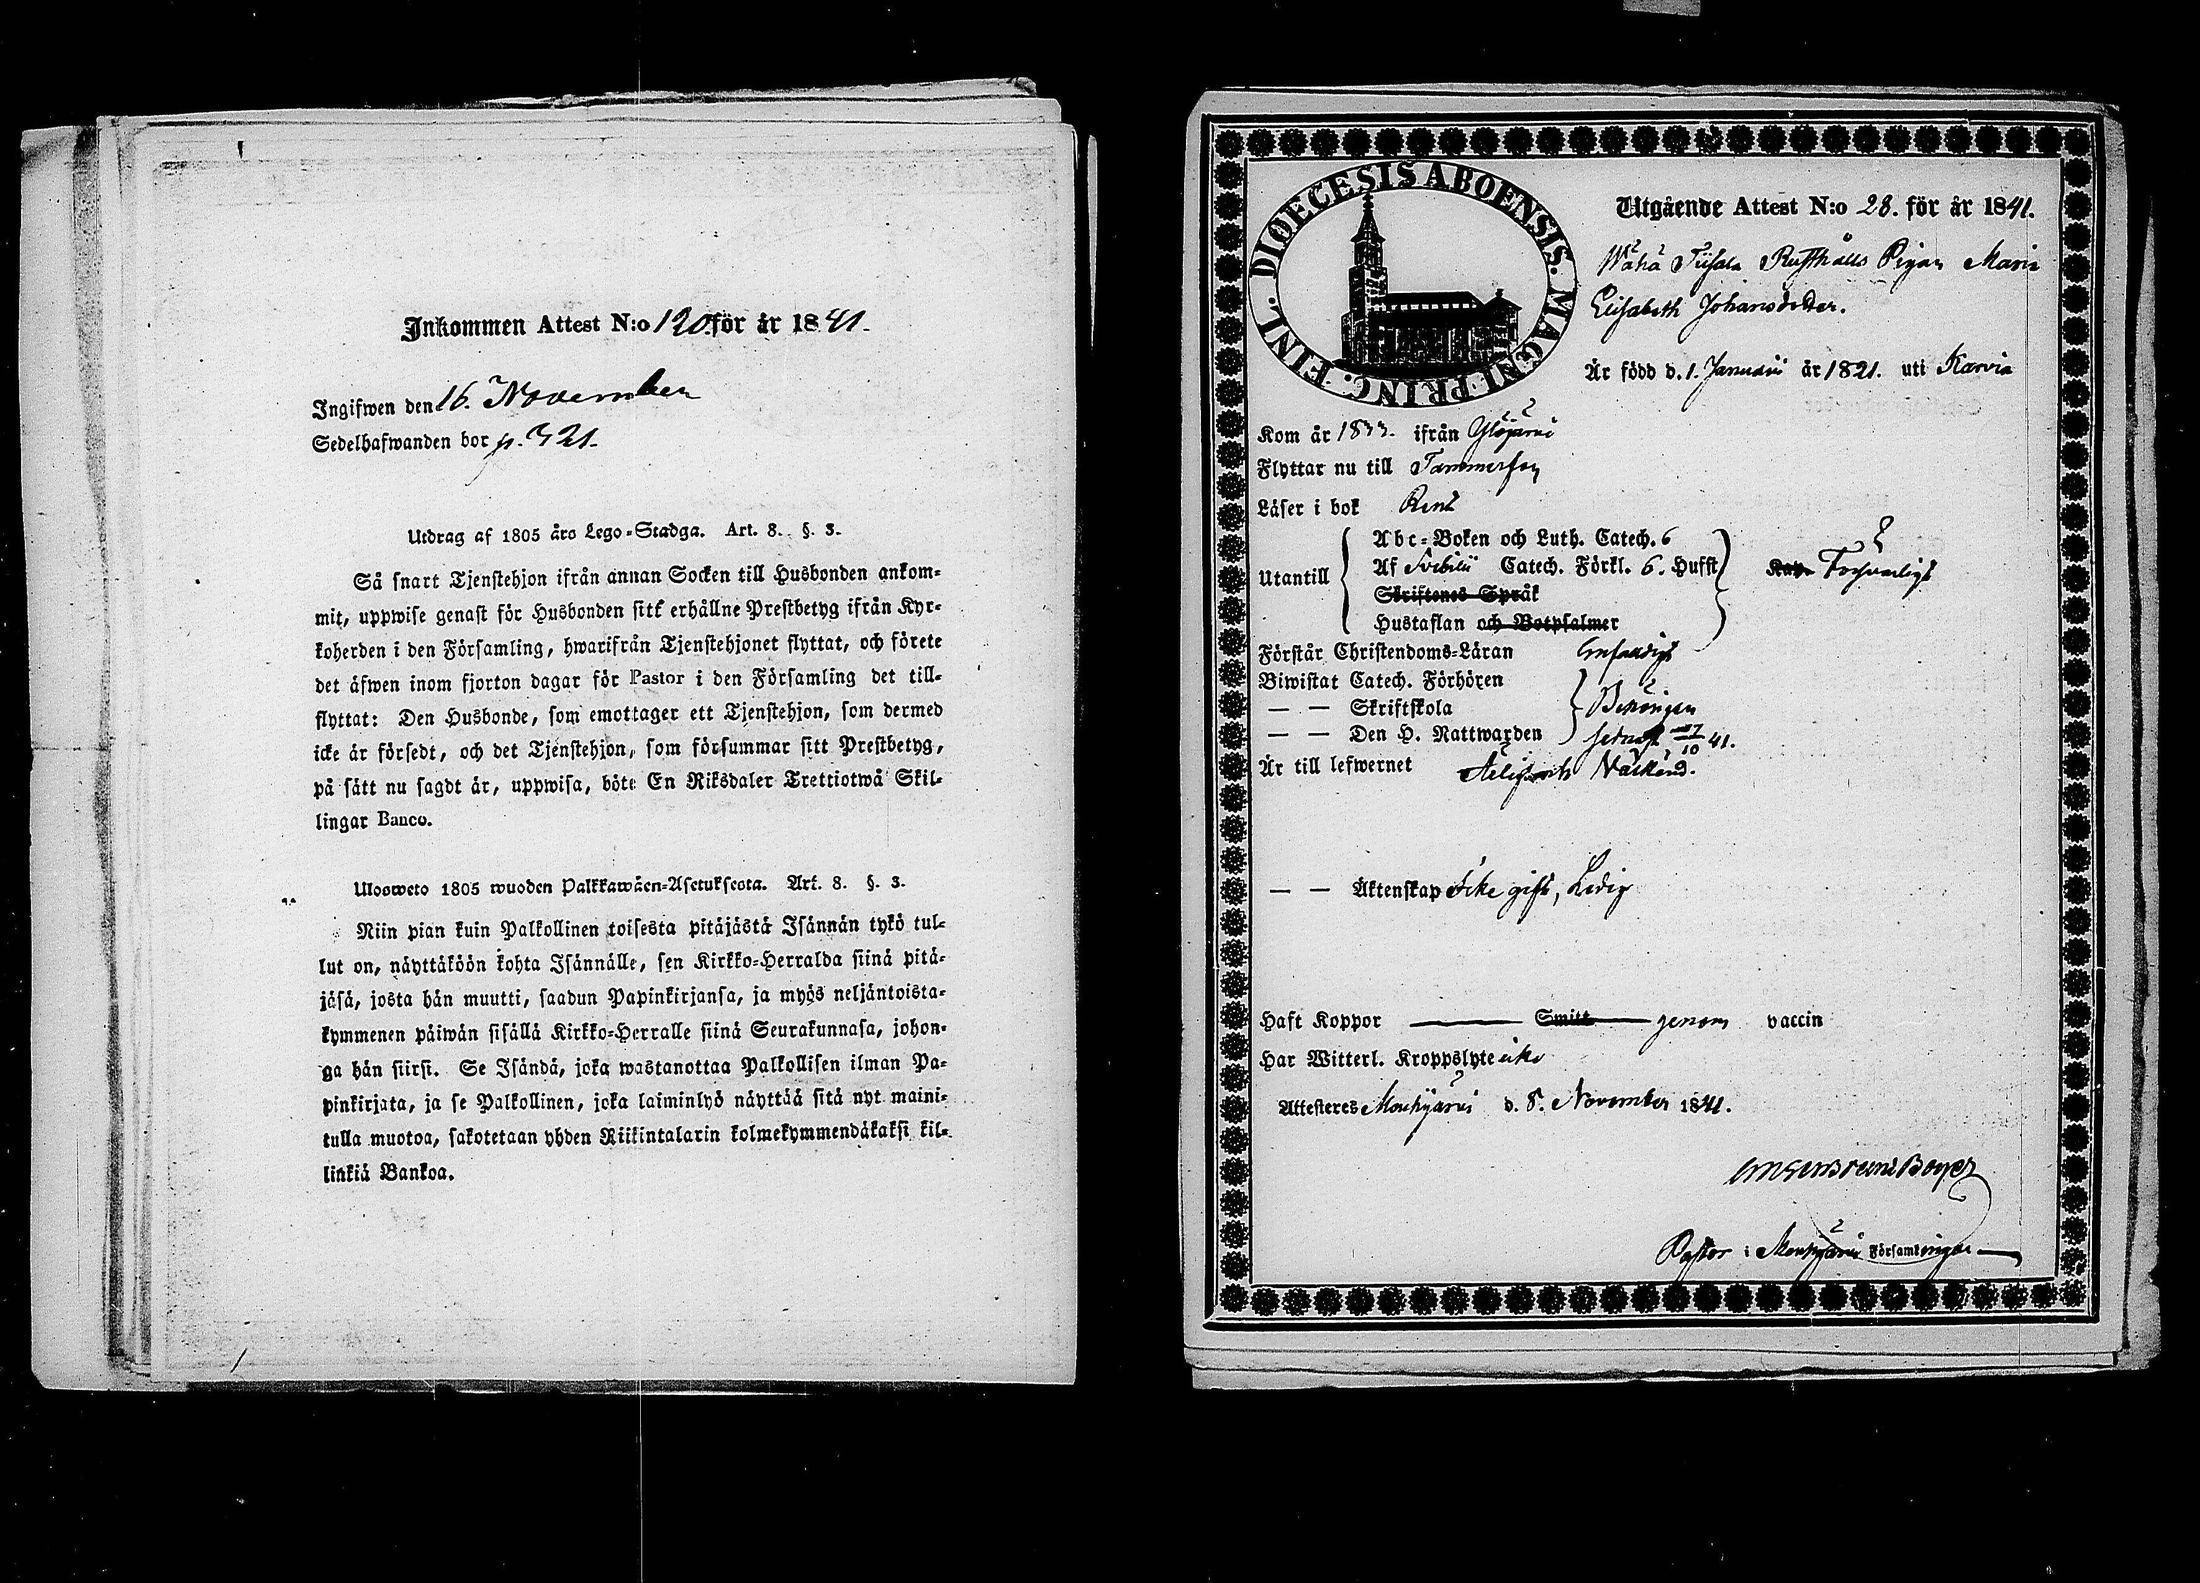 Inkommen Attest N:o 120. för år 1841.
Ingifwen den 16. November
Sedelhafwanden bor p. 321.
Utdrag af 1805 års Lego-Stadga. Art. 8. §. 3.
Så snart Tjenstehjon ifrån annan Socken till Husbonden ankom-
mit, uppwise genast för Husbonden sitt erhållne Prestbetyg ifrån Kyr-
koherden i den Församling, hwarifrån Tjenstehjonet flyttat, och förete
det äfwen inom fjorton dagar för Pastor i den Församling det till-
flyttat: Den Husbonde, som emottager ett Tjenstehjon, som dermed
icke är försedt, och det Tjenstehjon, som försummar sitt Prestbetyg,
på sätt nu sagdt är, uppwisa, böte En Riksdaler Trettiotwå Skil-
lingar Banco.
Ulosweto 1805 wuoden Palkkawäen-Asetuksesta. Art. 8. §. 3.
Niin pian kuin Palkollinen toisesta pitäjästä Isännän tykö tul-
lut on, näyttäköön kohta Isännälle, sen Kirkko-Herralda siinä pitä-
jäsä, josta hän muutti, saadun Papinkirjansa, ja myös neljäntoista-
kymmenen päiwän sisällä Kirkko-Herralle siinä Seurakunnasa, johon-
ga hän siirsi. Se Isändä, joka wastanottaa Palkollisen ilman Pa-
pinkirjata, ja se Palkollinen, joka laiminlyö näyttää sitä nyt maini-
tulla muotoa, sakotetaan yhden Riikintalarin kolmekymmendäkaksi kil-
linkiä Bankoa.
DIOECESIS ABOENSIS. MAGNI PRINC. FINL.
Utgående Attest N:o 28. för år 1841.
Wähä Tiisala Rusthålls Pigan Maria
Elisabeth Johansdotter.
Är född d. 1. Januarii år 1821. uti Karvia
Kom år 1833. ifrån Ylöjärvi
Flyttar nu till Tammerfors
Läser i bok Rent
Utantill
Abc-Boken och Luth. Catech. 6
Af Svebilii Catech. Förkl. 6. Hufst
Skriftenes Språk
Hustaflan och Botpsalmer
Försvarligt
Förstår Christendoms-Läran Enfaldigt
Biwistat Catech. Förhören
— — Skriftskola
— — Den H. Nattwarden
Behörigen
sednast 17/10 41.
Är till lefwernet Välkänd.
— — Äktenskap Icke gift, Ledig
Haft Koppor Smitt genom vaccin
Har Witterl. Kroppslyte icke
Attesteres Mouhijärvi d. 8. November 1841.
Pastor i Mouhijärvi Församlingar